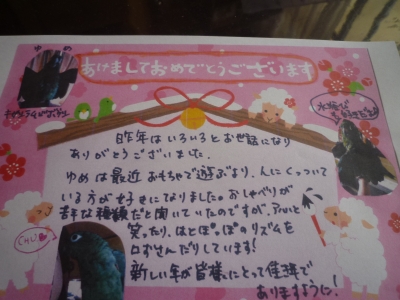 ゆめ
あけましておめでとうございます
昨年はいろいろとお世話になり
ありがとうございました。
ゆめは最近おもちゃで遊ぶより、人にくっついて
いる方が好きになりました。おしゃべりが
苦手な種類だと聞いていたのですが、アハハと
笑ったり、はとぽっぽのリズムを
口ずさんだりしています!
新しい年が皆様にとって佳き年で
ありますように!
CHU